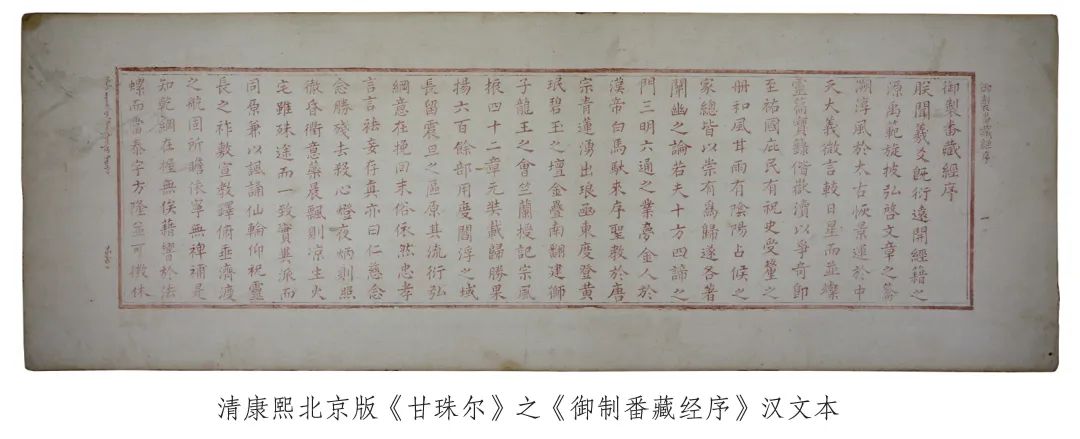 御製番藏經序
朕聞羲文旣衍遠開經籍之
源禹範旋披弘啓文章之籥
溯淳風於太古恢景運於中
天大義微言較日星而並燦
臺篇寶錄偕歡瀆以爭奇卽
至祐國庇民有祝史受釐之
冊和風甘雨有陰陽占候之
家總皆以崇有爲歸遂各著
闡幽之論若夫十方四諦之
門三明六通之業夢金人於
漢帝白馬馱來序聖教於唐
宗青蓮湧出琅函東度登黄
珉碧玉之壇金疊南翻建獅
子龍王之會竺蘭授記宗風
振四十二章元奘載歸勝果
揚六百餘部用度閻浮之域
長留震旦之區原其流衍弘
綱意在挽回末俗依然忠孝
言言祛妄存真亦曰仁慈念
念勝殘去殺心燈夜炳則照
徹昏衢意蘂晨飄則凉生火
宅雖殊途而一致實異派而
同原兼以諷誦仙輪仰祝靈
長之祚敷宣教鐸俯垂濟渡
之航固所瞻依寧無裨補是
知乾綱在握無俟藉響於法
螺而當泰宇方隆並可徵休
御製番藏經序
一
清康熙北京版《甘珠尔》之《御制番藏经序》汉文本